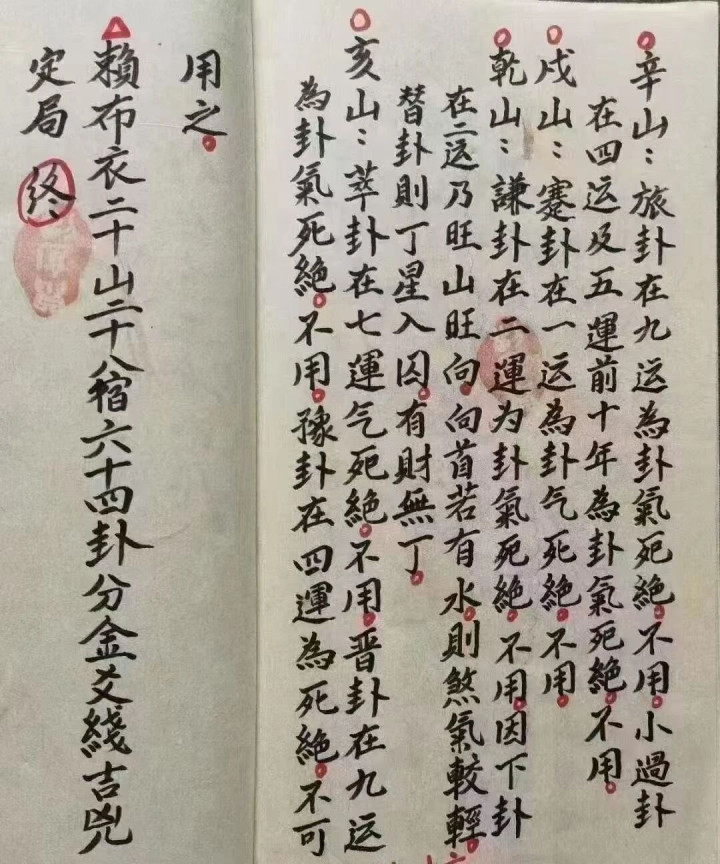 辛山：旅卦在九运為卦氣死絶。不用。小過卦
在四运及五運前十年為卦氣死絶。不用。
戍山：蹇卦在一运為卦气死絶。不用。
乾山：謙卦在二運为卦氣死绝。不用。因下卦
在二运乃旺山旺向。向首若有水。则煞氣較輕。
替卦则丁星入囚。有財無丁。
亥山：萃卦在七運气死絶。不用。晋卦在九运
為卦氣死絶。不用。豫卦在四運為死绝。不可
用之。
賴布衣二十山二十八宿六十四卦分金爻綫吉兇
定局 终